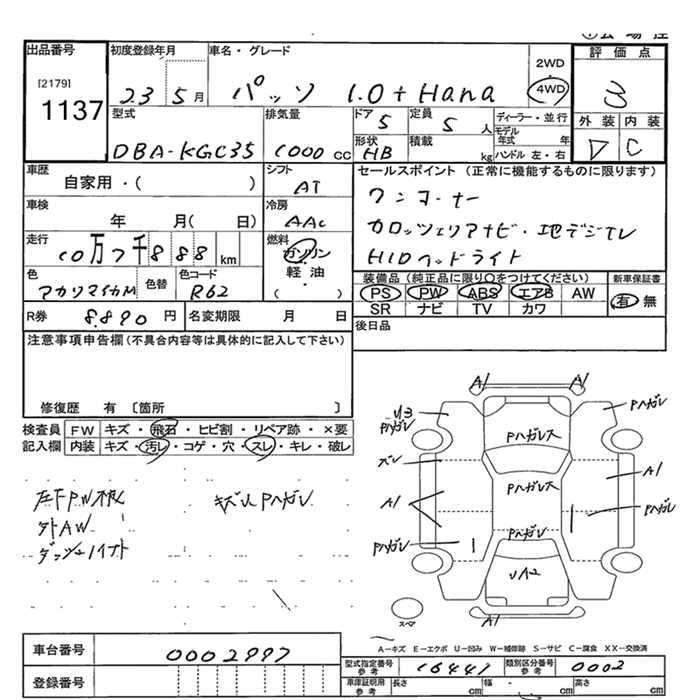 出品番号
[2179]
1137
初度登録年月
23 5月
車名・グレード
パッソ 1.0 + Hana
2WD
4WD
評価点
3
外装 内装
D C
型式
DBA-KGC35
排気量
1000 cc
ドア 5
形状 HB
定員 5 人
積載 kg
ディーラー・並行
モデル年式 年
ハンドル 左・右
車歴
自家用・( )
シフト
AT
セールスポイント(正常に機能するものに限ります)
ワンオーナー
カロッツェリアナビ・地デジTV
HIDヘッドライト
車検
年 月( 日)
冷房
AAC
走行
10万7千888 km
燃料
ガソリン
軽油
( ・ )
色
アカリマイカM
色替
色コード
R62
装備品(純正品に限り○をつけてください)
新車保証書
PS PW ABS エアB AW
SR ナビ TV カワ
有 無
R券 8.890 円
名変期限 月 日
後日品
注意事項申告欄(不具合内容等は具体的に記入して下さい)
修復歴 有〔箇所 〕
検査員記入欄
FW キズ・飛石・ヒビ割・リペア跡・×要
内装 キズ・汚レ・コゲ・穴・スレ・キレ・破レ
左下PW不良
外AW
キズU Pハガレ
A1 A1
U3
Pハガレ
Pハガレ
Pハガレ大
A1
Pハガレ大
A1
Pハガレ
Pハガレ
Pハガレ
UA2
A1
スペア
A-キズ E-エクボ U-凹み W-補修跡 S-サビ C-腐食 XX-交換済
車台番号
0002997
型式指定番号 参考
16441
類別区分番号 参考
0002
登録番号
車庫証明用 参考
長さ cm
幅 cm
高さ cm